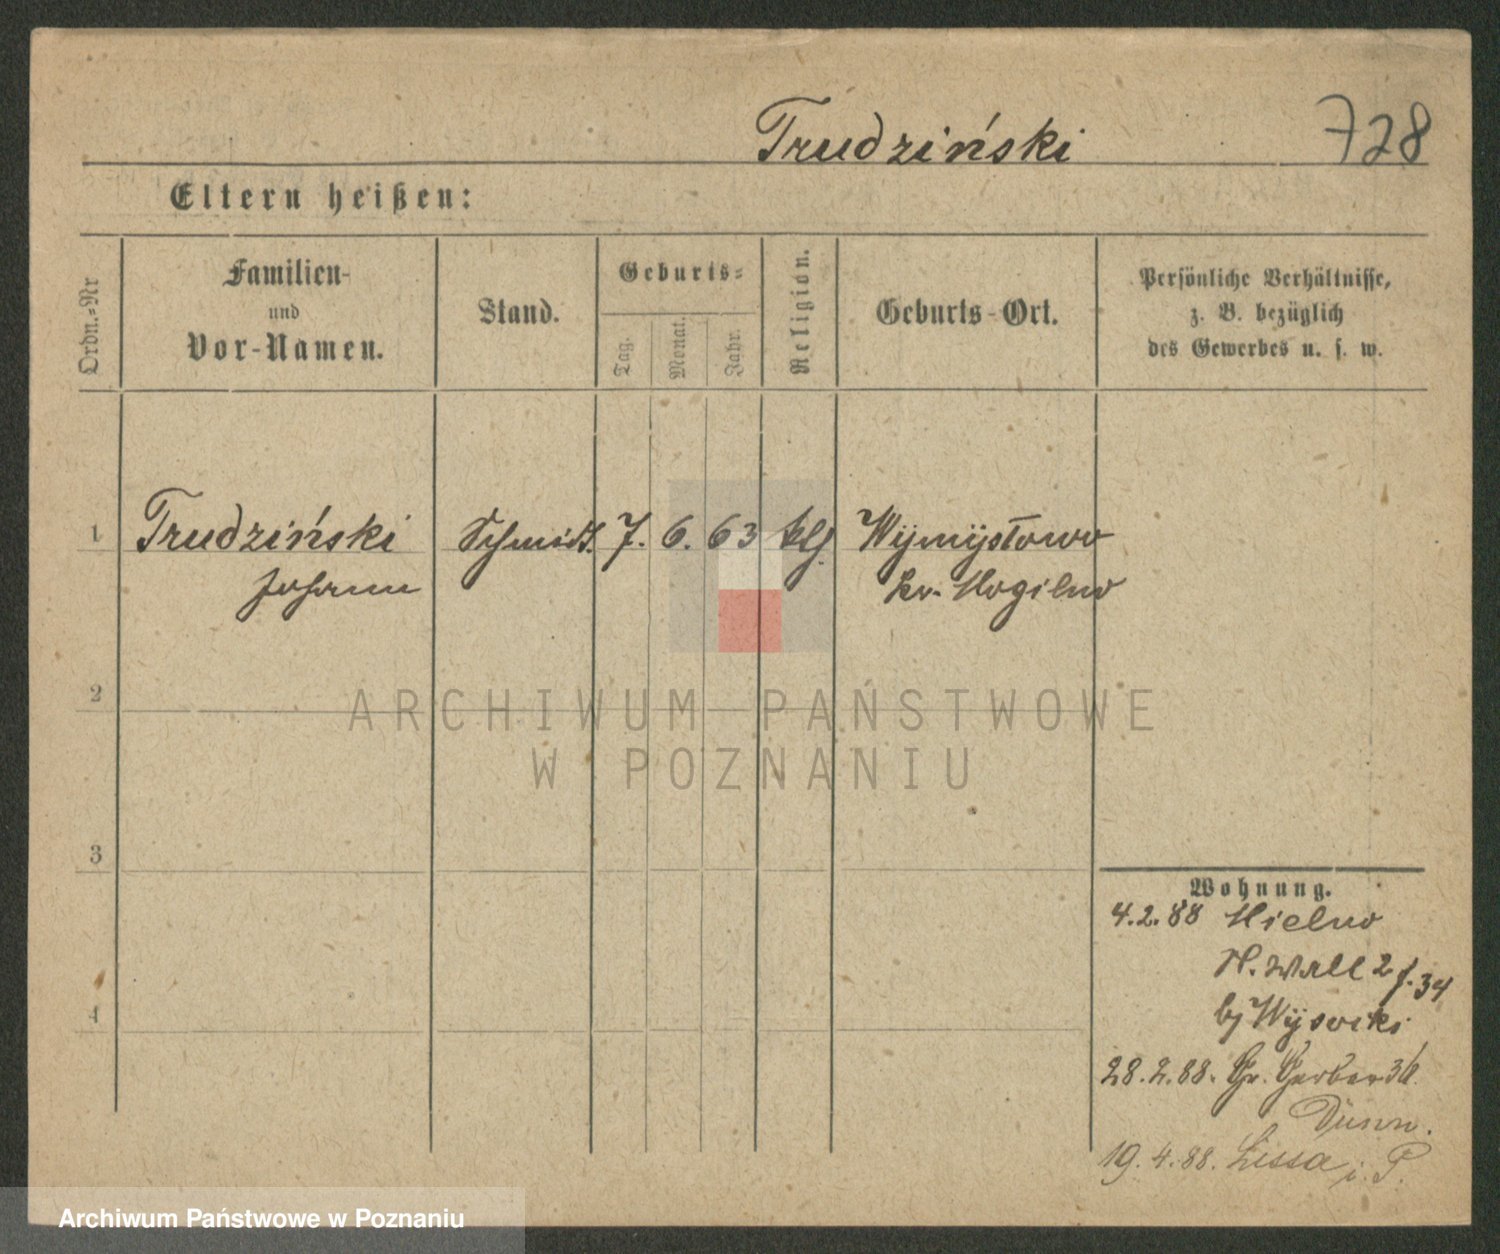 Trudziński 728
Eltern heißen:
Ordn.-Nr
Familien-
und
Vor-Namen.
Stand.
Geburts-
Tag.
Monat.
Jahr.
Religion.
Geburts-Ort.
Persönliche Verhältnisse,
z. B. bezüglich
des Gewerbes u. s. w.
1 Trudziński Schmidt. 7. 6. 63 klj. Wÿmÿsłowo
Johann Kr. Mogilno
2
ARCHIWUM PAŃSTWOWE
W POZNANIU
3
Wohnung.
4.2.88 Mielno
N. Wall 2 f. 34
bj Wÿsocki
4
28.2.88. Gr. Gerber 36.
Dünn.
19.4.88. Lissa i. P.
Archiwum Państwowe w Poznaniu